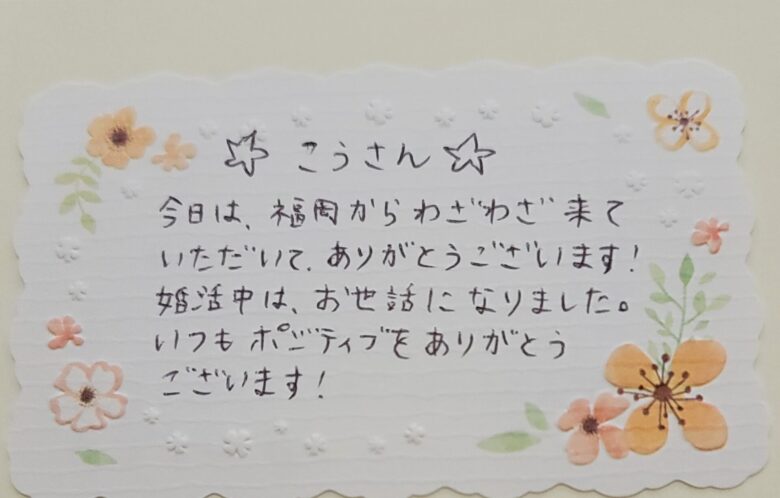 ☆ こうさん ☆
今日は、福岡からわざわざ来て
いただいて、ありがとうございます!
婚活中は、お世話になりました。
いつもポジティブをありがとう
ございます!